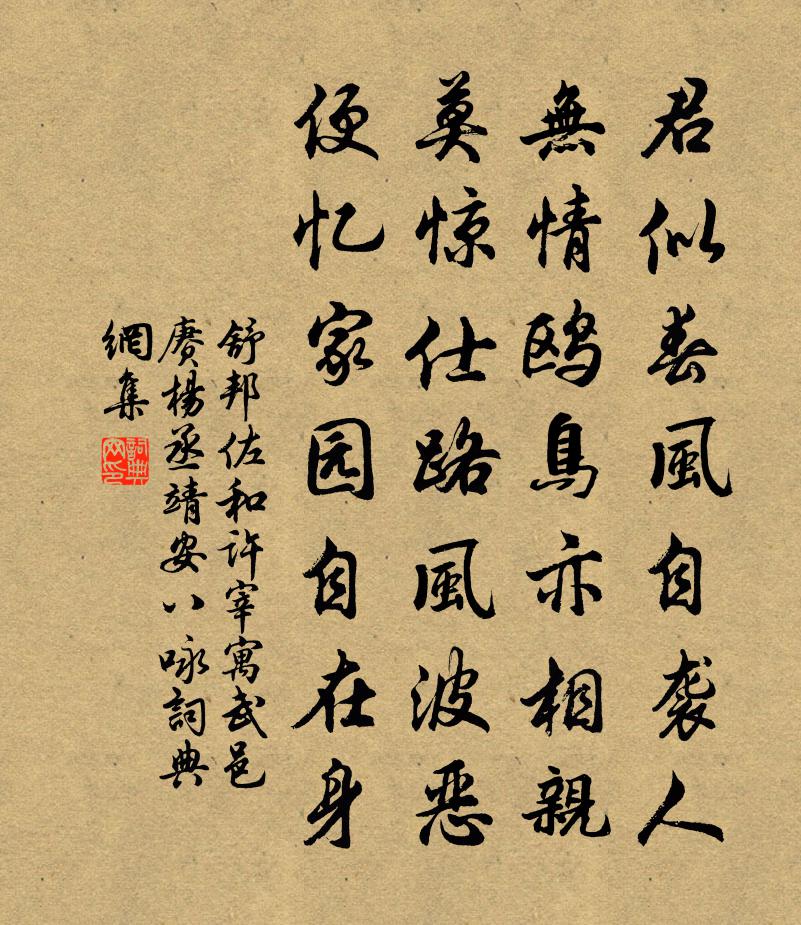 君似春風自袭人
無情鸥鳥亦相親
莫惊仕路風波恶
便忆家园自在身
舒邦佐和许宰寓武邑
赓楊丞靖安八咏詞典
網集
詞典
网印